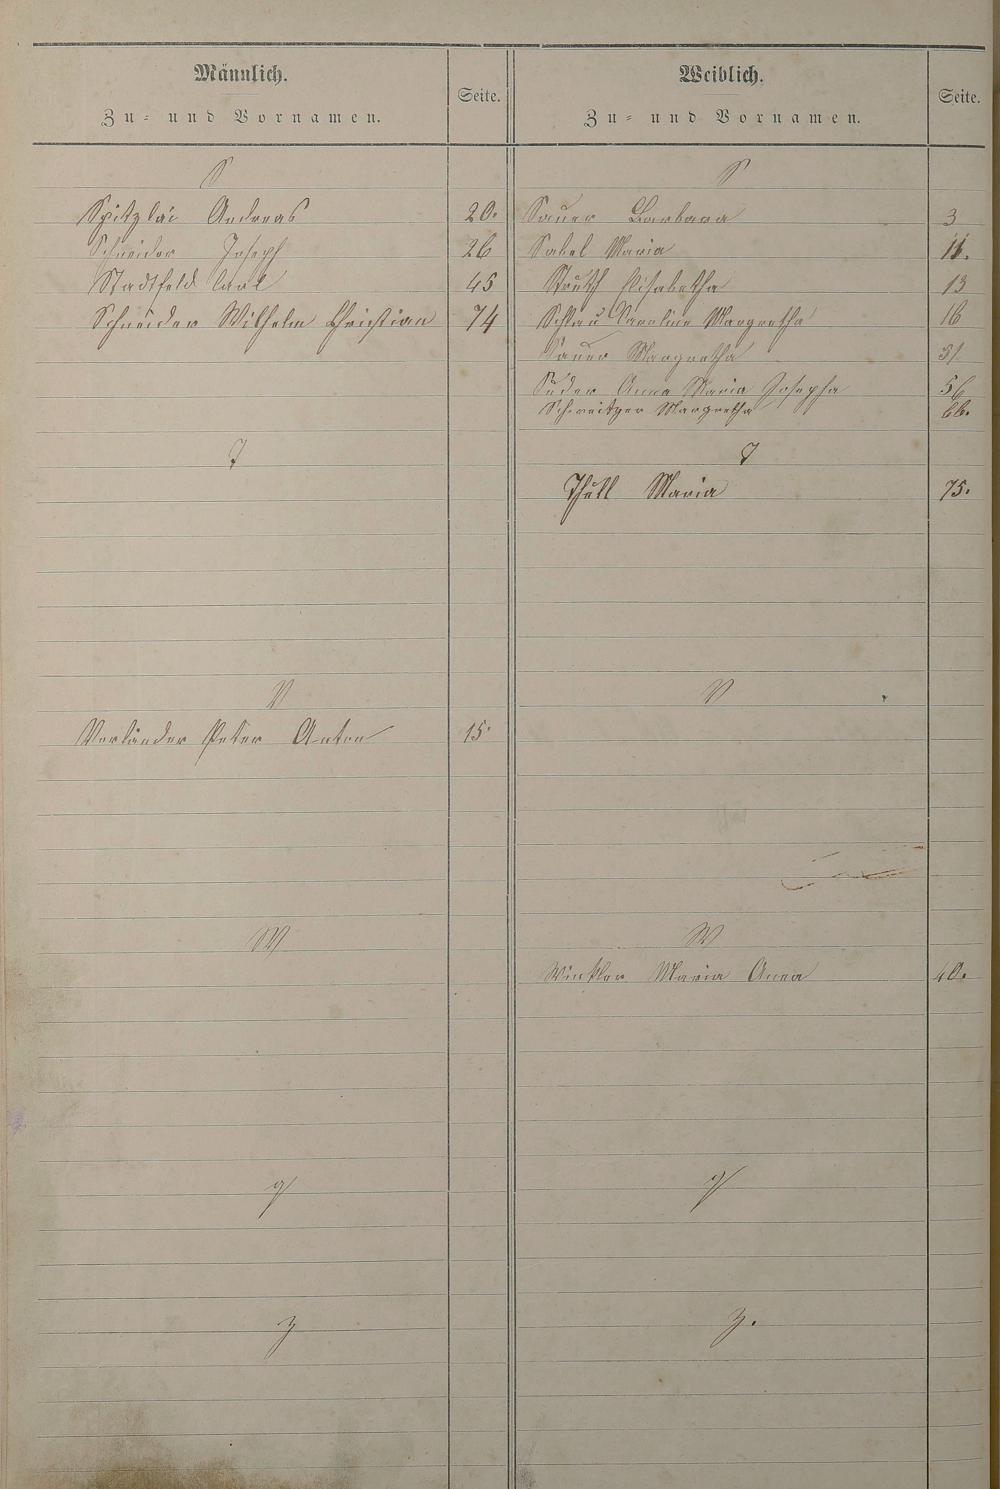 Männlich.
Zu- und Vornamen.
Seite.
S
Spitzlai Andreas 20.
Schneider Joseph 26
Stadtfeld Carl 45
Schneider Wilhelm Christian 74
T
V
Vorländer Peter Anton 15.
W
Y
Z
Weiblich.
Zu- und Vornamen.
Seite.
S
Sauer Barbara 3
Sabel Maria 11.
Struth Elisabetha 13
Schlau Caroline Margretha 16
Sauer Margretha 51
Suder Anna Maria Josepha 56
Schweitzer Margretha 66.
T
Thull Maria 75.
V
W
Winkler Maria Anna 40.
Y
Z.